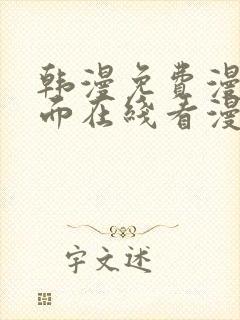 韩漫免费漫
而在线看漫
字文述